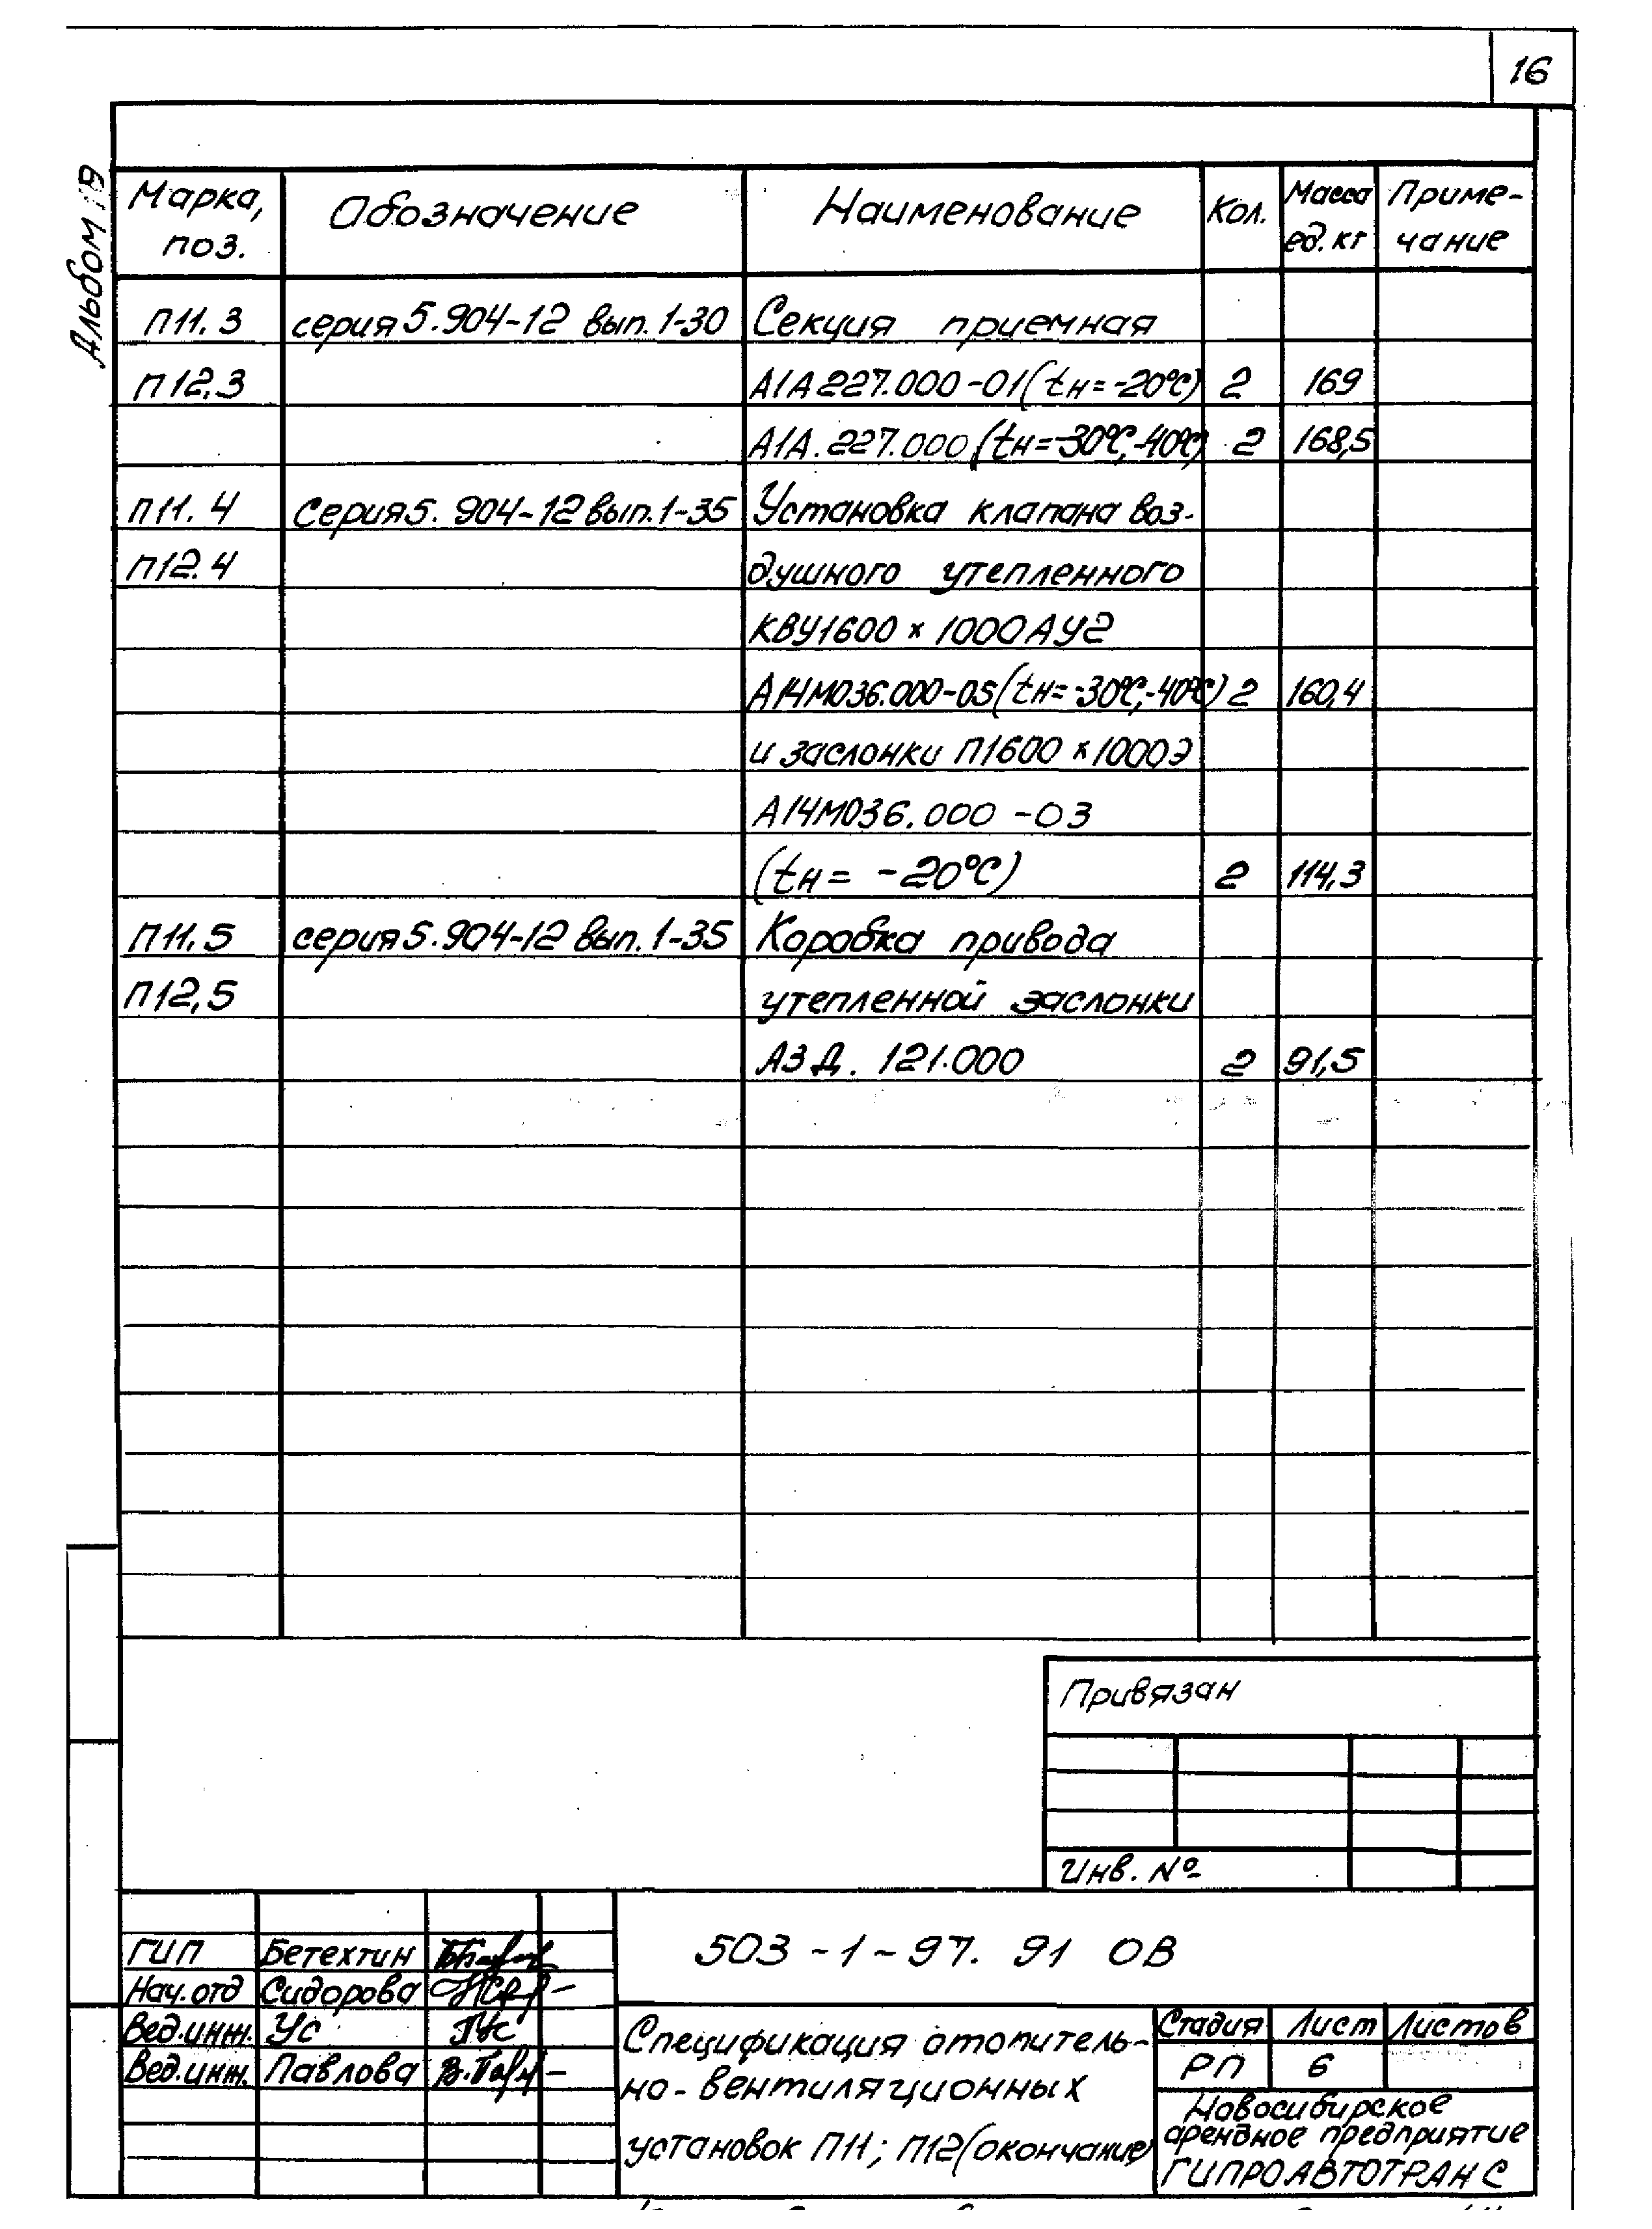 16
Альбом
Марка, поз. Обозначение Наименование Кол. Масса ед. кг Приме-чание
П11.3 серия 5.904-12 вып. 1-30 Секция приемная
П12.3 А1А227.000-01(tн=-20°С) 2 169
А1А.227.000(tн=-30°С,-40°С) 2 168,5
П11.4 Серия 5.904-12 вып. 1-35 Установка клапана воз-
П12.4 душного утепленного
КВУ1600×1000АУ2
А14М036.000-05(tн=-30°С,-40°С) 2 160,4
и заслонки П1600×1000Э
А14М036.000-03
(tн= -20°С) 2 114,3
П11.5 серия 5.904-12 вып. 1-35 Коробка привода
П12,5 утепленной заслонки
АЗД. 121.000 2 91,5
Привязан
Инв. №
ГИП Бетехтин
Нач.отд Сидорова
Вед.инж. Ус
Вед.инж. Павлова
503-1-97.91 ОВ
Спецификация отопитель-
но-вентиляционных
установок П11; П12(окончание)
Стадия Лист Листов
РП 6
Новосибирское
арендное предприятие
ГИПРОАВТОТРАНС